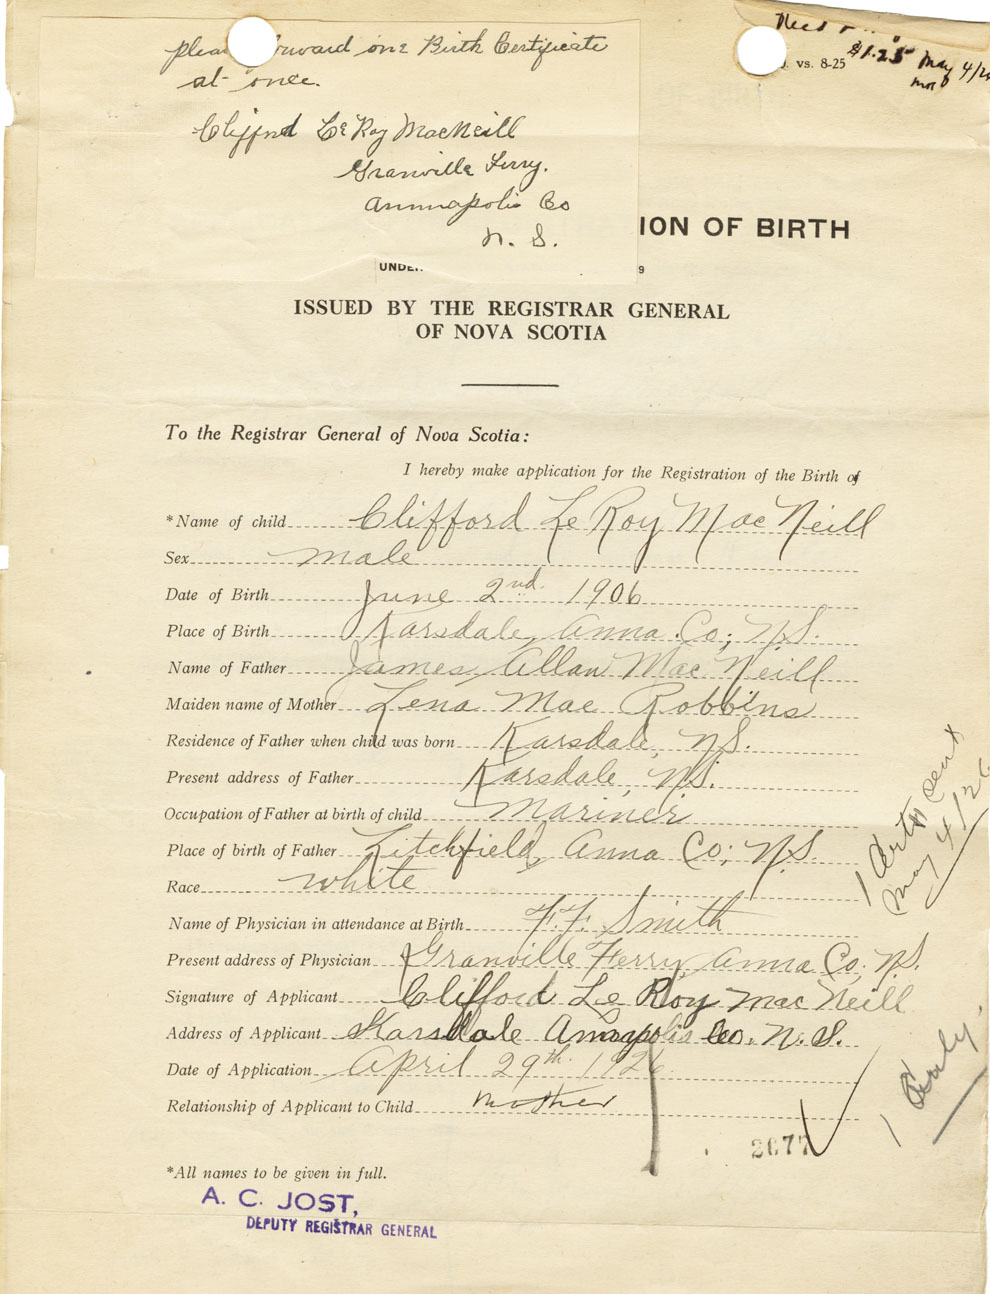 forward one Birth Certificate
at once.
Clifford Le Roy MacNeill
Granville Ferry.
Annnapolis Co
N. S.
vs. 8-25
$1.25 May 4/26
ION OF BIRTH
UNDER
9
ISSUED BY THE REGISTRAR GENERAL
OF NOVA SCOTIA
To the Registrar General of Nova Scotia:
I hereby make application for the Registration of the Birth of
*Name of child Clifford Le Roy Mac Neill
Sex male
Date of Birth June 2nd. 1906
Place of Birth Karsdale, Anna. Co; N.S.
Name of Father James Allan Mac Neill
Maiden name of Mother Lena Mae Robbins
Residence of Father when child was born Karsdale, N.S.
Present address of Father Karsdale, N.S.
Occupation of Father at birth of child Mariner
Place of birth of Father Litchfield, Anna Co; N.S.
Race white
Name of Physician in attendance at Birth F. F. Smith
Present address of Physician Granville Ferry, Anna Co; N.S.
Signature of Applicant Clifford Le Roy Mac Neill
Address of Applicant Karsdale Annapolis Co. N. S.
Date of Application April 29th. 1926
Relationship of Applicant to Child mother
2677
*All names to be given in full.
A. C. JOST,
DEPUTY REGISTRAR GENERAL
sent
May 4/26
1